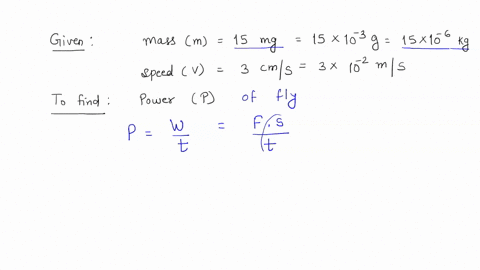 Given : mass (m) = 15 mg = 15 × 10⁻³ g = 15 × 10⁻⁶ kg
speed (V) = 3 cm/s = 3 × 10⁻² m/s
To find : Power (P) of fly
P = W/t = F.s/t